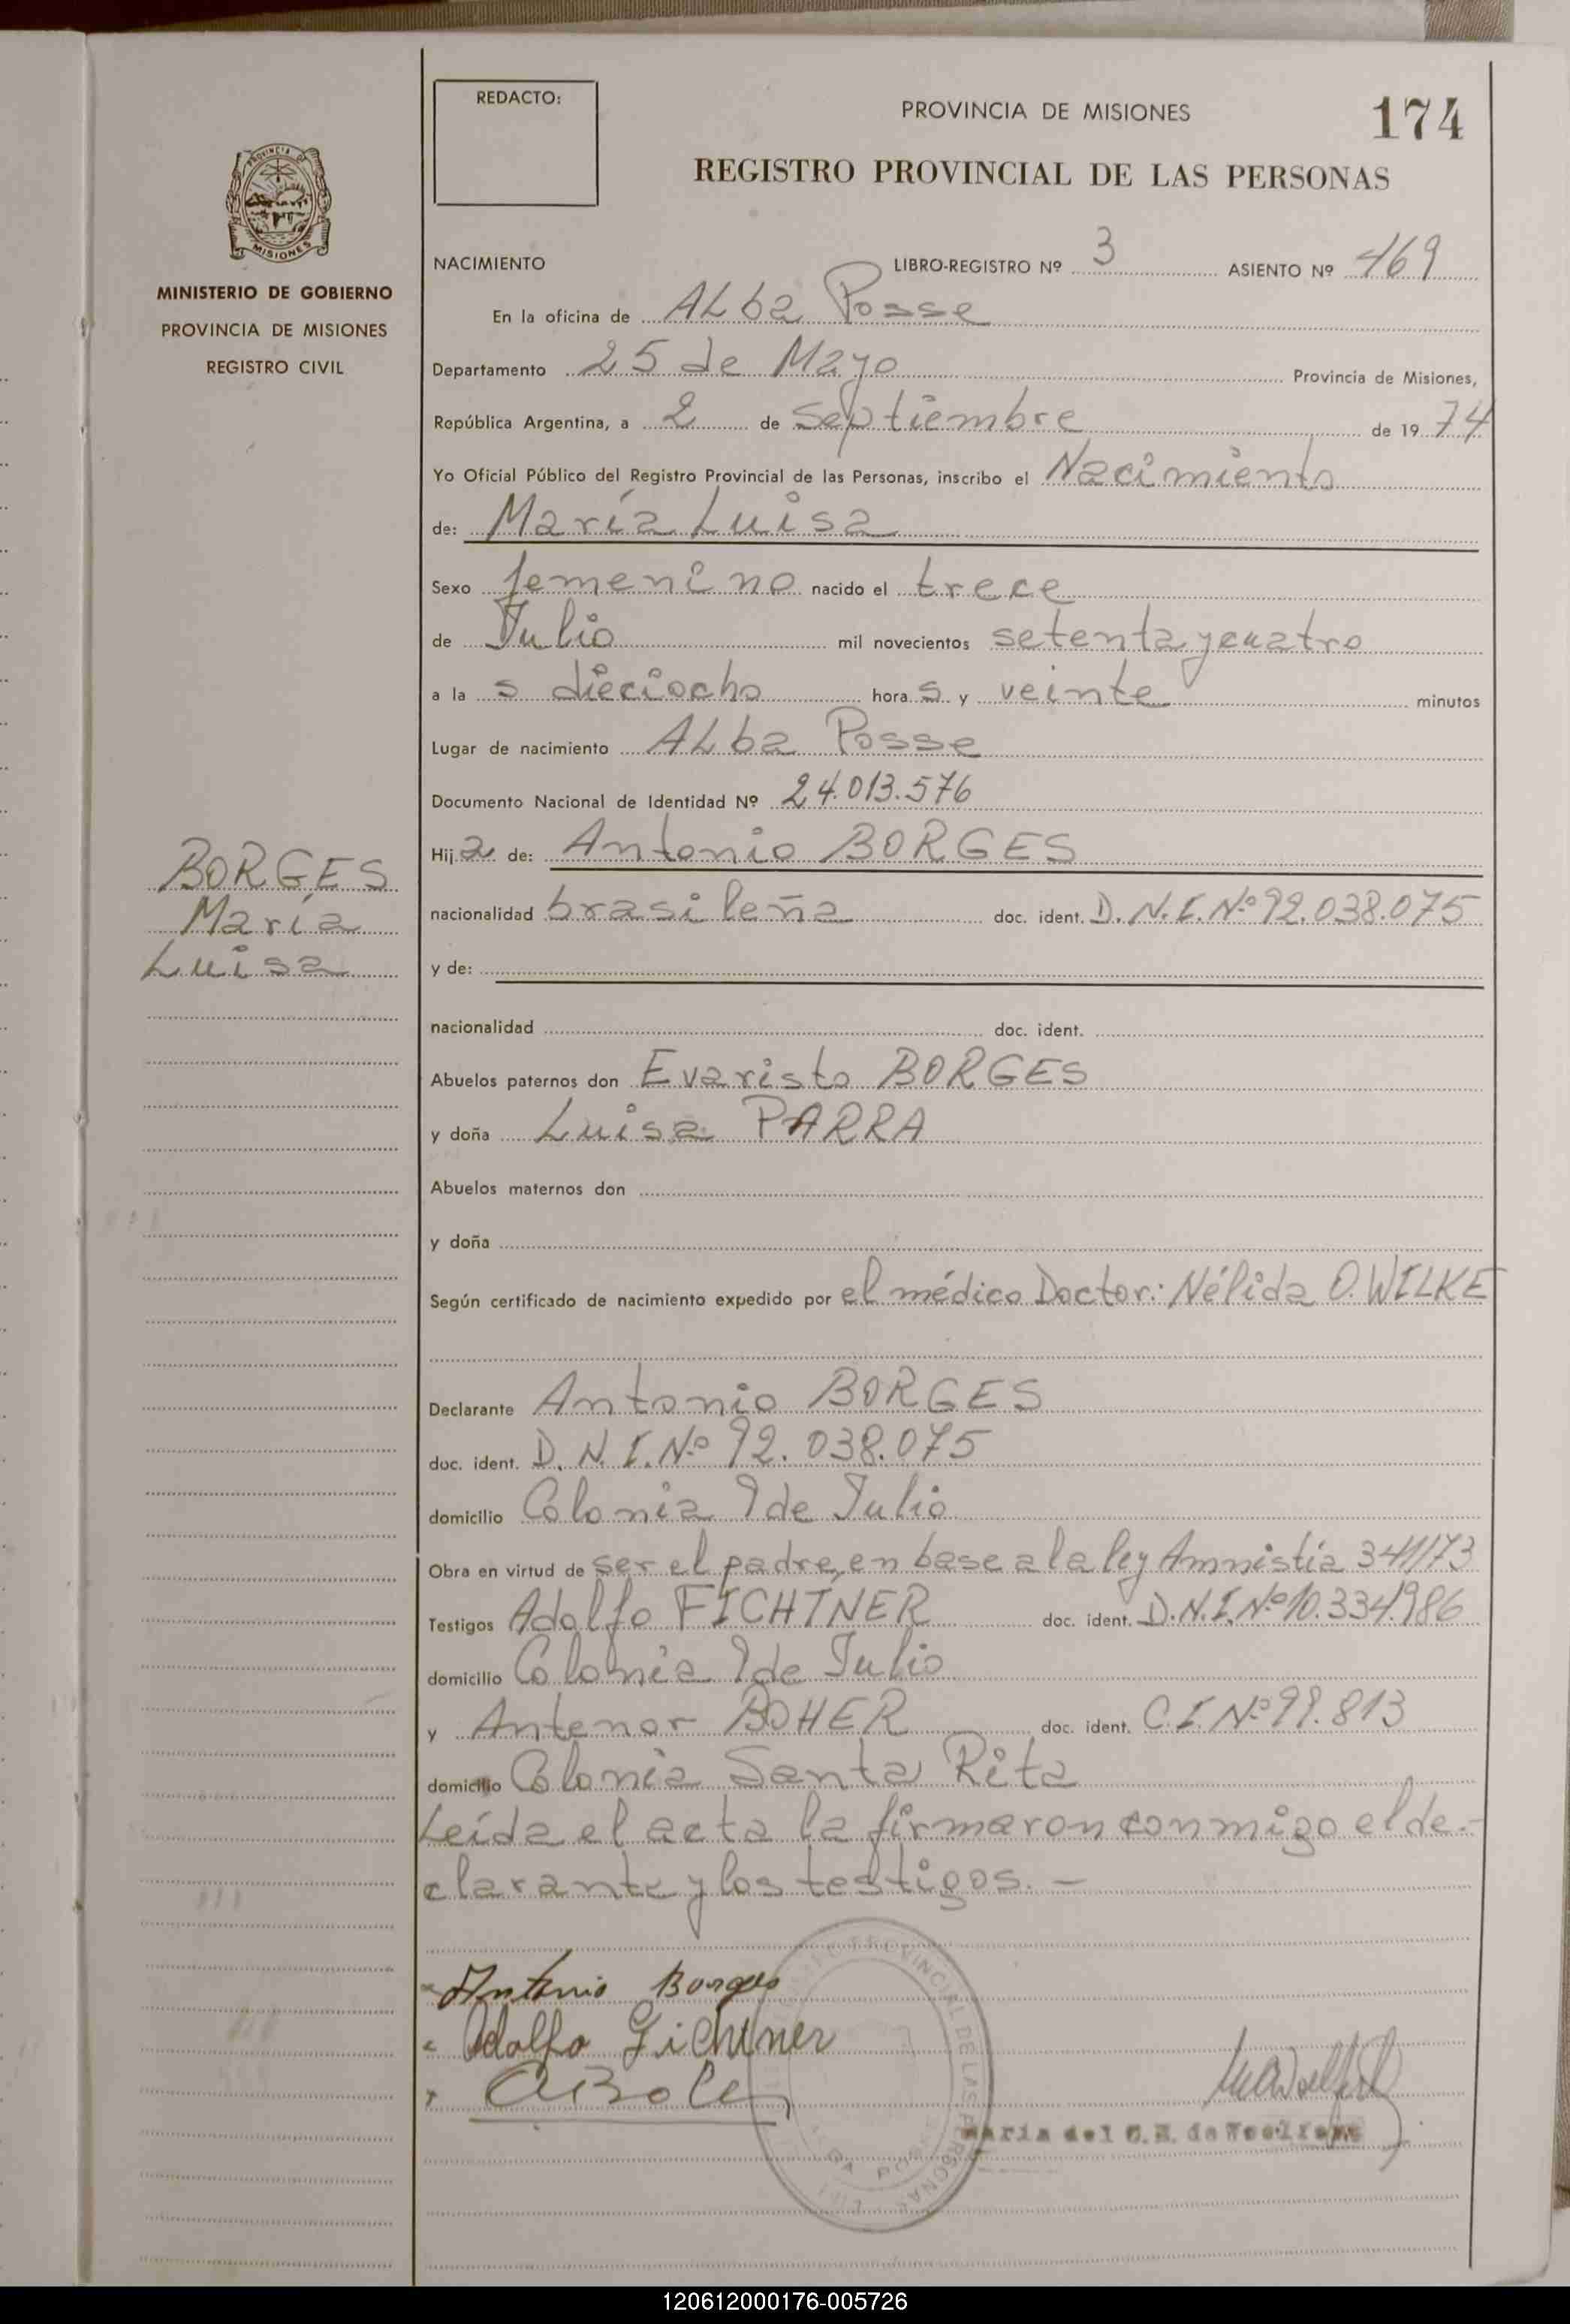 REDACTO:
PROVINCIA DE MISIONES
174
REGISTRO PROVINCIAL DE LAS PERSONAS
PROVINCIA DE
MISIONES
MINISTERIO DE GOBIERNO
PROVINCIA DE MISIONES
REGISTRO CIVIL
NACIMIENTO LIBRO-REGISTRO Nº 3 ASIENTO Nº 469
En la oficina de ALba Posse
Departamento 25 de Mayo Provincia de Misiones,
República Argentina, a 2 de Septiembre de 19 74
Yo Oficial Público del Registro Provincial de las Personas, inscribo el Nacimiento
de: María Luisa
Sexo femenino nacido el trece
de Julio mil novecientos setenta y cuatro
a la s dieciocho hora s y veinte minutos
Lugar de nacimiento ALba Posse
Documento Nacional de Identidad Nº 24.013.576
Hij a de: Antonio BORGES
BORGES
María
Luisa
nacionalidad brasileña doc. ident. D.N.I.Nº 92.038.075
y de:
nacionalidad doc. ident.
Abuelos paternos don Evaristo BORGES
y doña Luisa PARRA
Abuelos maternos don
y doña
Según certificado de nacimiento expedido por el médico Doctor: Nélida O. WILKE
Declarante Antonio BORGES
doc. ident. D.N.I.Nº 92.038.075
domicilio Colonia 9 de Julio
Obra en virtud de ser el padre, en base a la ley Amnistía 341/73
Testigos Adolfo FICHTNER doc. ident. D.N.I.Nº 10.334.986
domicilio Colonia 9 de Julio
y Antenor BOHER doc. ident. C.I.Nº 99.813
domicilio Colonia Santa Rita
Leída el acta la firmaron conmigo el de-
clarante y los testigos. —
Antonio Borges
Adolfo Fichtner
PROVINCIAL DE LAS PERSONAS
María del C.
120612000176-005726